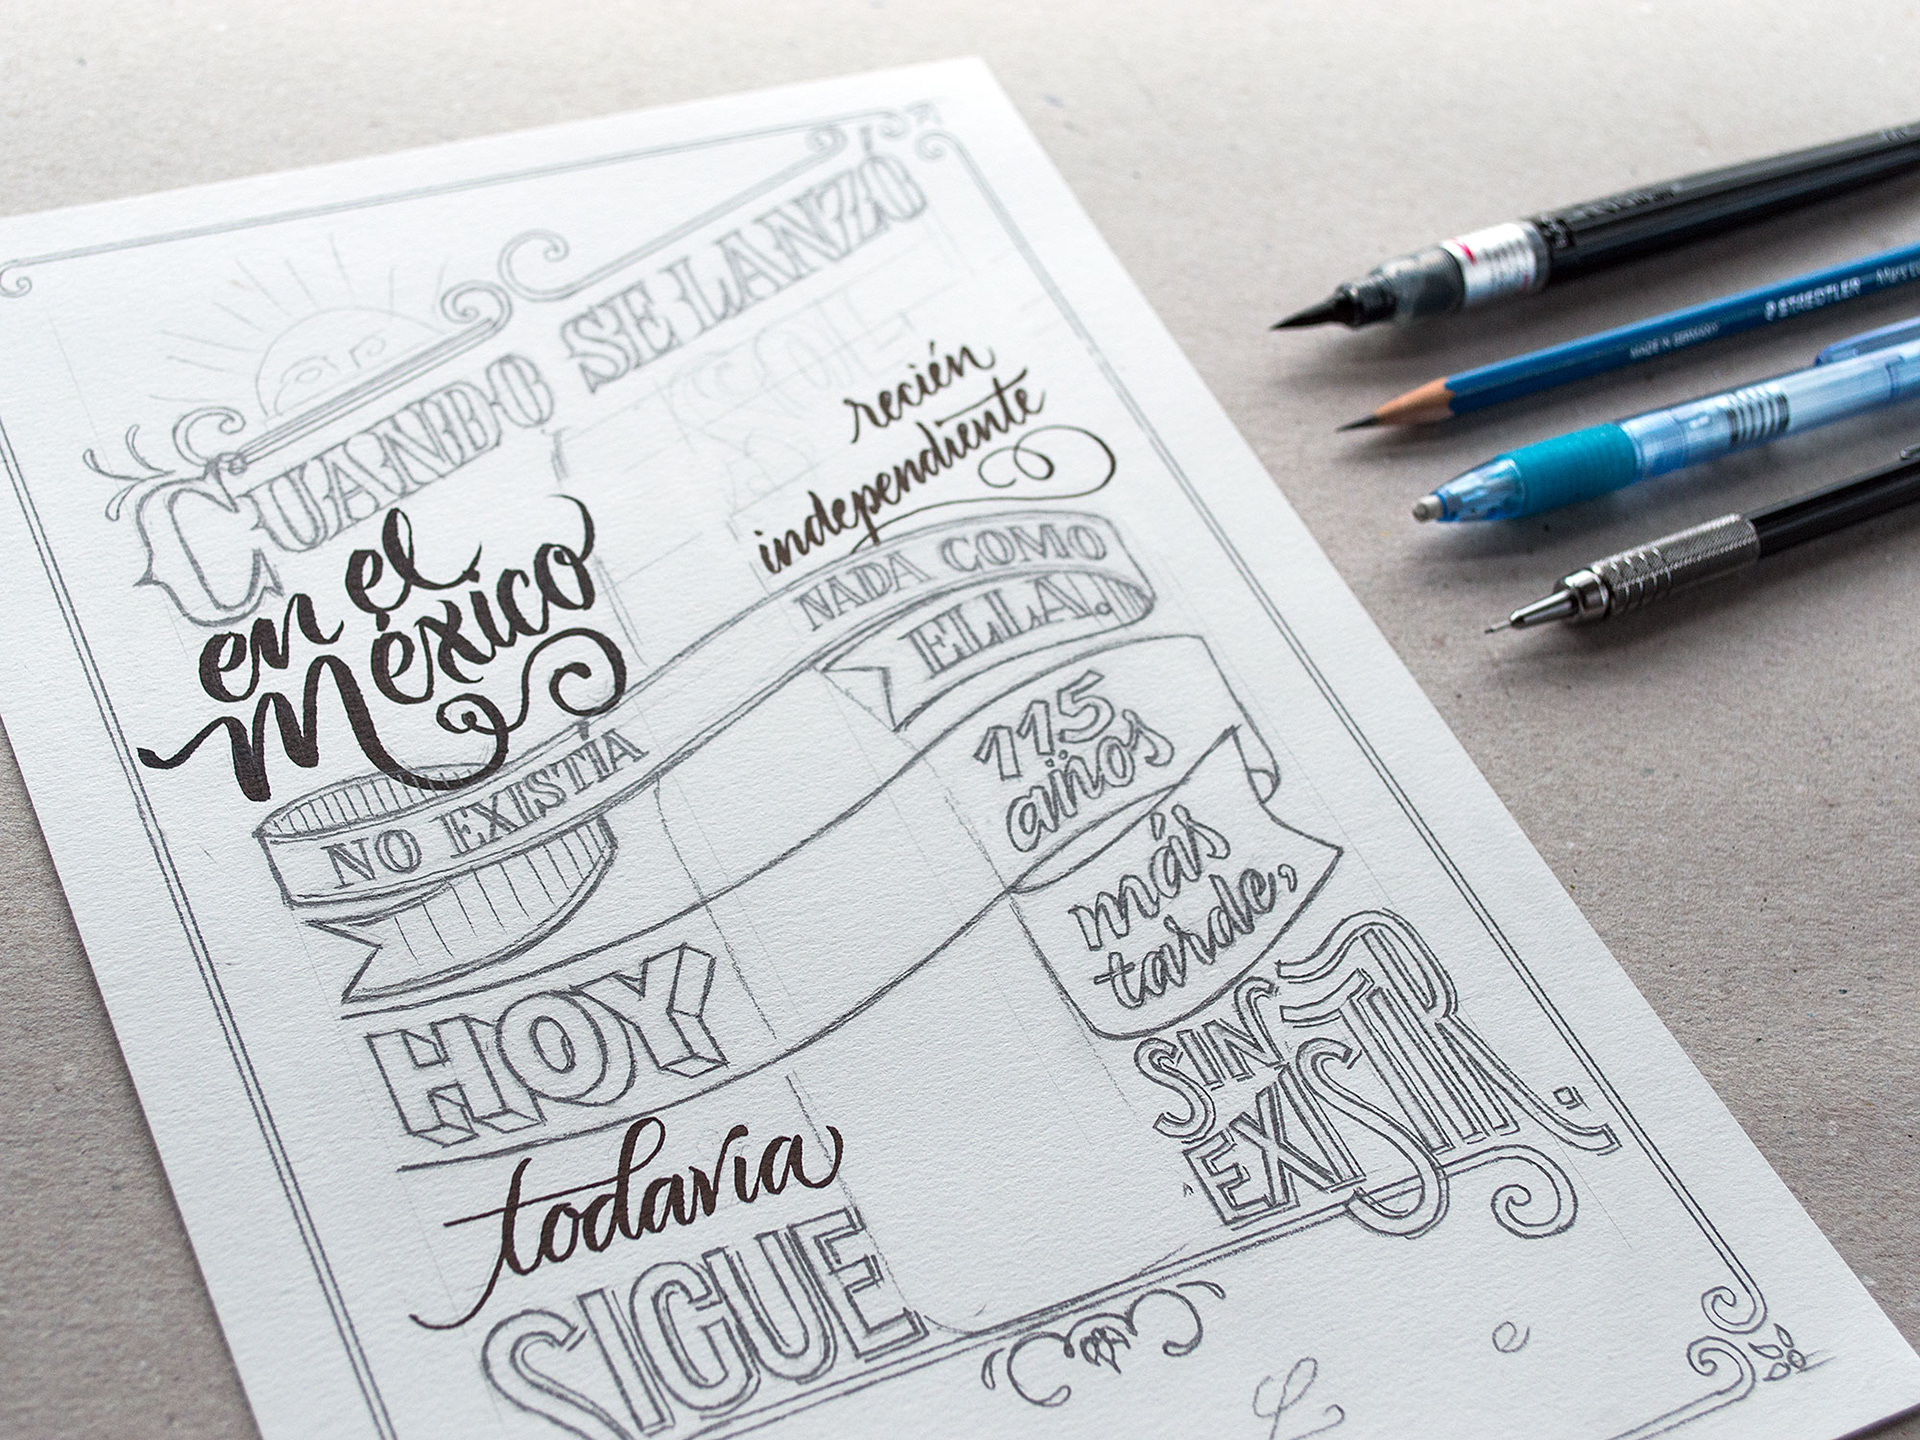 CUANDO SE LANZÓ
en el
México
recién
independiente
NO EXISTÍA
NADA COMO
ELLA.
HOY
115
años
más
tarde,
todavía
SIGUE
SIN
EXISTIR.
L
e
STAEDTLER
MADE IN GERMANY